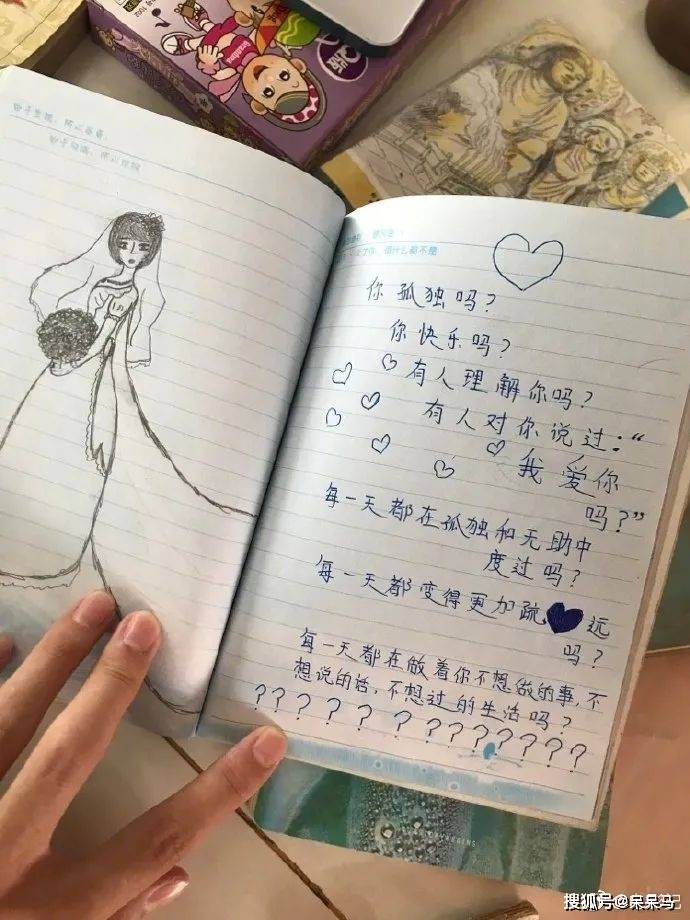 你孤独吗？
你快乐吗？
有人理解你吗？
有人对你说过：“
我爱你
吗？”
每一天都在孤独和无助中
度过吗？
每一天都变得更加疏、远
吗？
每一天都在做着你不想做的事，不
想说的话，不想过的生活吗？
？？？？？？？？？？？？？？
搜狐号@呆呆马